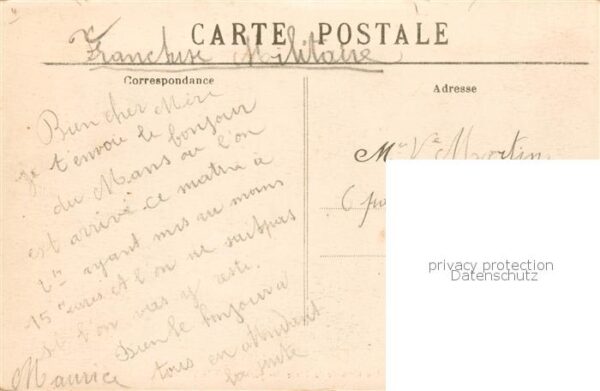 CARTE POSTALE
Franchise Militaire
Correspondance
Adresse
Bien cher Mère
je t'envoie le bonjour
du Mans ou l'on
est arrivé ce matin à
ayant mis au moins
15 eures et l'on ne sait pas
si l'on vas y reste.
Bien le bonjour a
tous en attendent
la suite
Maurice
Mme Ve Martin
6
privacy protection
Datenschutz